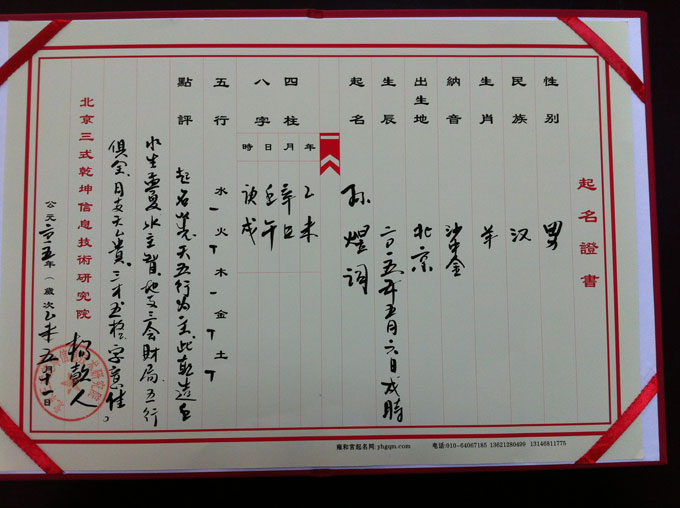 起名證書
性别 男
民族 汉
生肖 羊
納音 沙中金
出生地 北京
生辰 二〇一五年五月六日戌時
起名 孙 词
四柱
八字
年 月 日 時
乙未
辛巳
壬午
庚戌
五行 水一火丅木一金丅土丅
點評 起名先天五行为主此乾造壬
水生孟夏水主智地支三会财局五行
俱全日支天乙貴三才五格字意佳。
北京三式乾坤信息技術研究院
公元二〇一五年(歲次乙未五月十一日
雍和宫起名网:yhgqm.com
电话:010-64067185 13621280499 13146811775